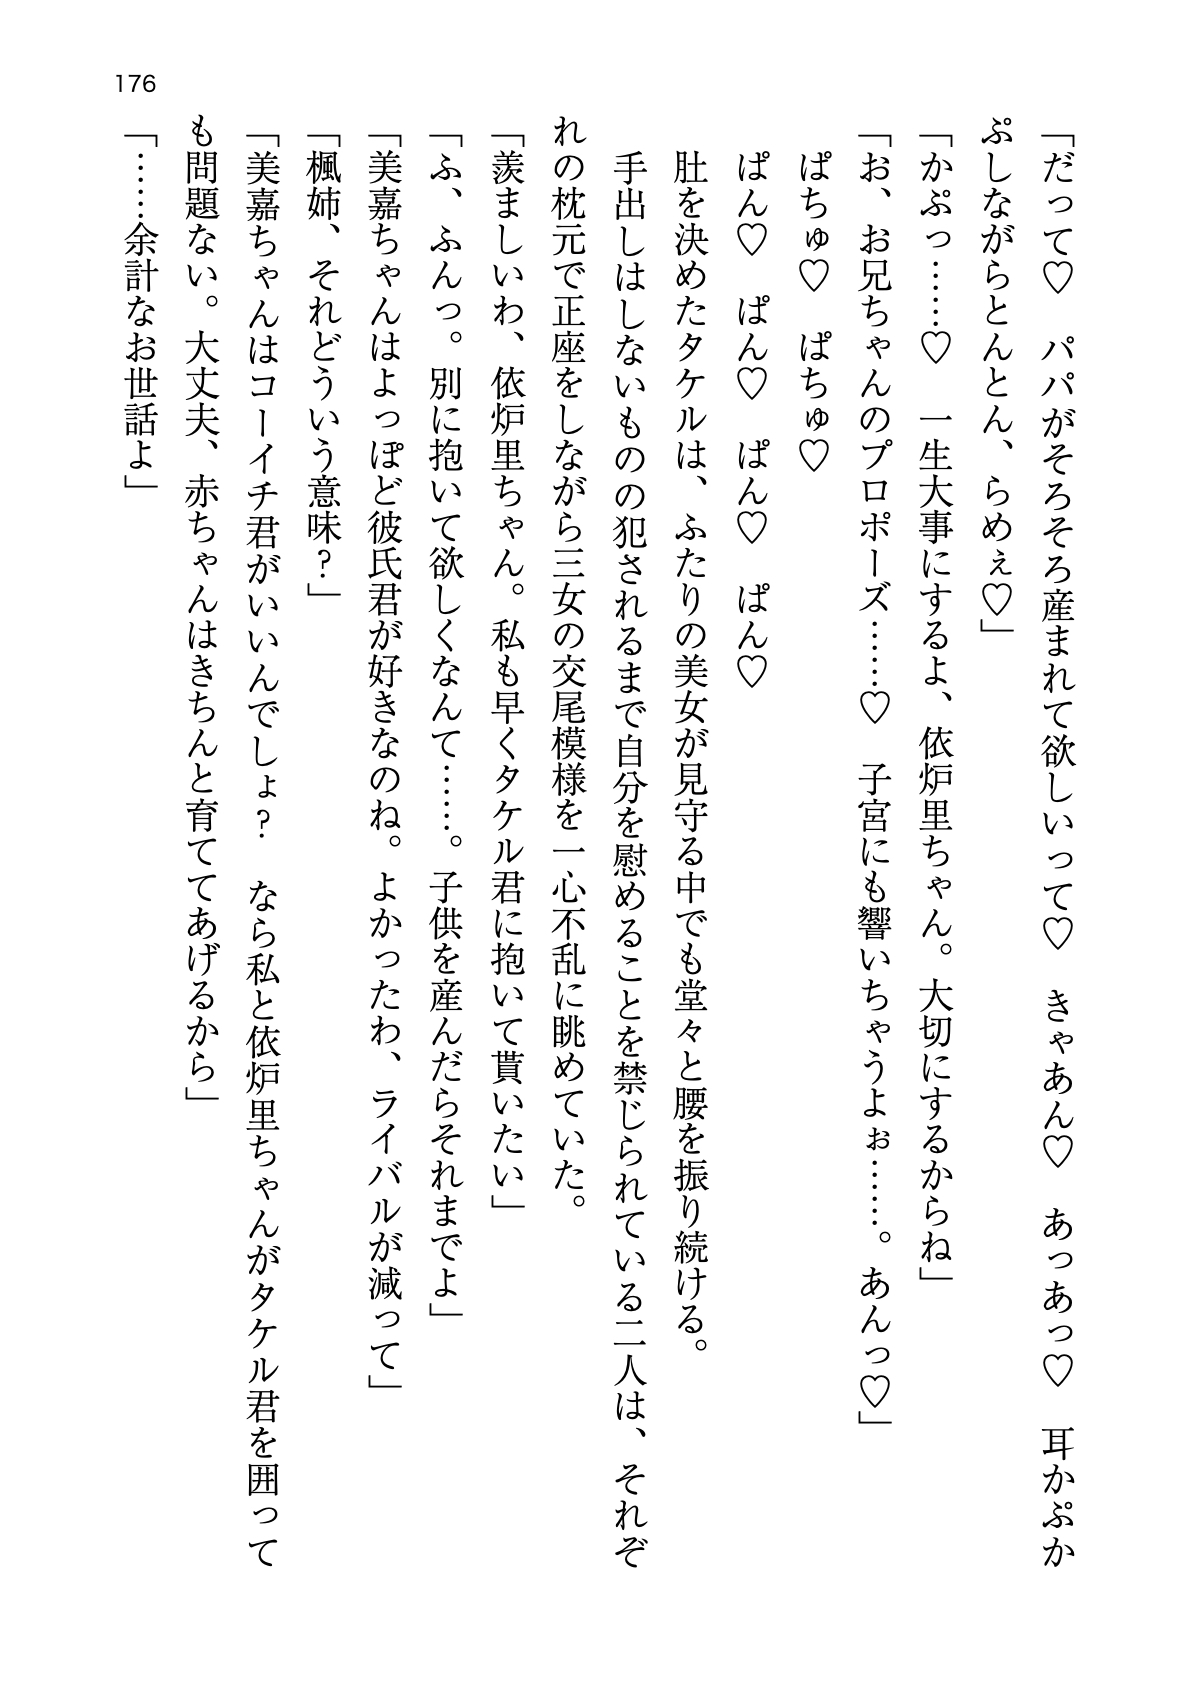 176
「だって♡　パパがそろそろ産まれて欲しいって♡　きゃあん♡　あっあっ♡　耳かぷか
ぷしながらとんとん、らめぇ♡」
「かぷっ……♡　一生大事にするよ、依炉里ちゃん。大切にするからね」
「お、お兄ちゃんのプロポーズ……♡　子宮にも響いちゃうよぉ……。あんっ♡」
　ぱちゅ♡　ぱちゅ♡
　ぱん♡　ぱん♡　ぱん♡　ぱん♡
　肚を決めたタケルは、ふたりの美女が見守る中でも堂々と腰を振り続ける。
　手出しはしないものの犯されるまで自分を慰めることを禁じられている二人は、それぞ
れの枕元で正座をしながら三女の交尾模様を一心不乱に眺めていた。
「羨ましいわ、依炉里ちゃん。私も早くタケル君に抱いて貰いたい」
「ふ、ふんっ。別に抱いて欲しくなんて……。子供を産んだらそれまでよ」
「美嘉ちゃんはよっぽど彼氏君が好きなのね。よかったわ、ライバルが減って」
「楓姉、それどういう意味？」
「美嘉ちゃんはコーイチ君がいいんでしょ？　なら私と依炉里ちゃんがタケル君を囲って
も問題ない。大丈夫、赤ちゃんはきちんと育ててあげるから」
「……余計なお世話よ」